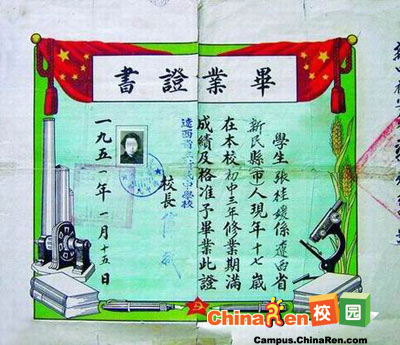 畢業證書
學生張桂媛係遼西省
新民縣(市)人現年十七歲
在本校初中三年修業期滿
成績及格准予畢業此證
校長
遼西省
中學校
一九五一年一月十五日
ChinaRen校园
Campus.ChinaRen.com